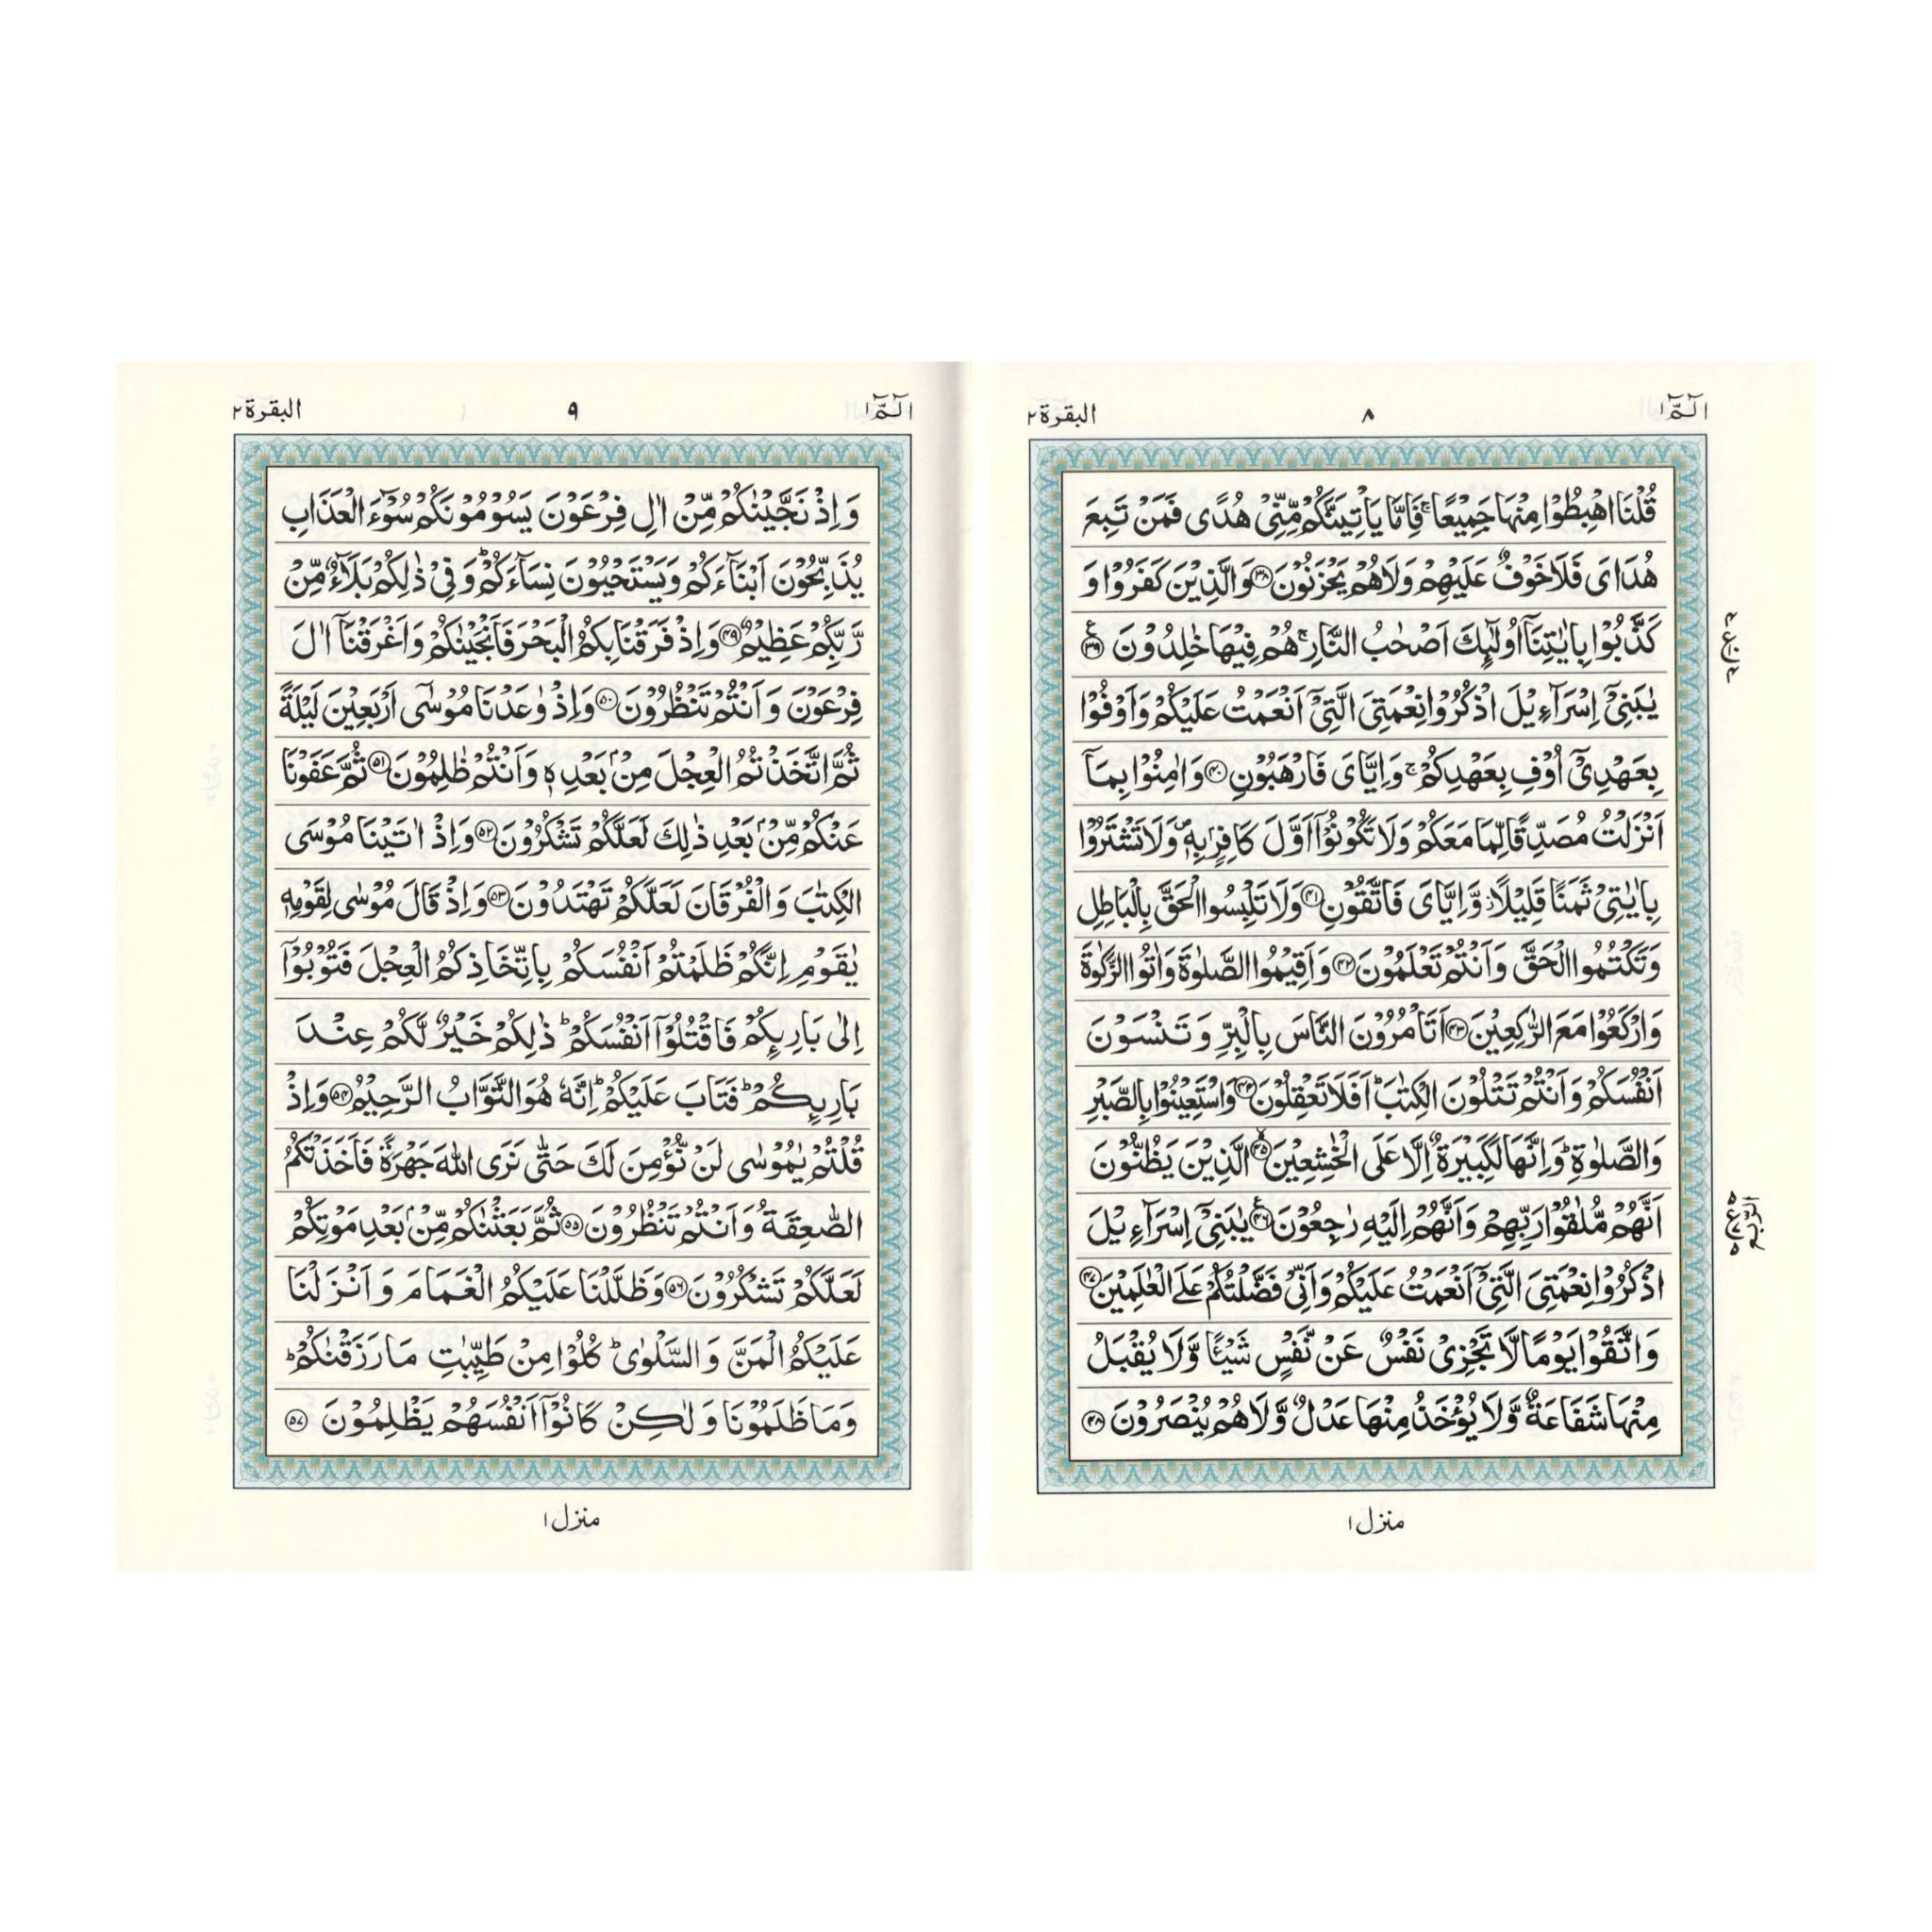 الٓمّٓ ١
٨
البقرة ٢
قُلْنَا اهْبِطُوْا مِنْهَا جَمِيْعًا ۚ فَاِمَّا يَاْتِيَنَّكُمْ مِّنِّىْ هُدًى فَمَنْ تَبِعَ
هُدَاىَ فَلَا خَوْفٌ عَلَيْهِمْ وَلَا هُمْ يَحْزَنُوْنَ ﴿٣٨﴾ وَالَّذِيْنَ كَفَرُوْا وَ
كَذَّبُوْا بِاٰيٰتِنَآ اُولٰٓئِكَ اَصْحٰبُ النَّارِ ۚ هُمْ فِيْهَا خٰلِدُوْنَ ﴿٣٩﴾ ع
يٰبَنِىْٓ اِسْرَآءِيْلَ اذْكُرُوْا نِعْمَتِىَ الَّتِىْٓ اَنْعَمْتُ عَلَيْكُمْ وَاَوْفُوْا
بِعَهْدِىْٓ اُوْفِ بِعَهْدِكُمْ ۚ وَاِيَّاىَ فَارْهَبُوْنِ ﴿٤٠﴾ وَاٰمِنُوْا بِمَآ
اَنْزَلْتُ مُصَدِّقًا لِّمَا مَعَكُمْ وَلَا تَكُوْنُوْٓا اَوَّلَ كَافِرٍۭ بِهٖ ۪ وَلَا تَشْتَرُوْا
بِاٰيٰتِىْ ثَمَنًا قَلِيْلًا ۫ وَّاِيَّاىَ فَاتَّقُوْنِ ﴿٤١﴾ وَلَا تَلْبِسُوا الْحَقَّ بِالْبَاطِلِ
وَتَكْتُمُوا الْحَقَّ وَاَنْتُمْ تَعْلَمُوْنَ ﴿٤٢﴾ وَاَقِيْمُوا الصَّلٰوةَ وَاٰتُوا الزَّكٰوةَ
وَارْكَعُوْا مَعَ الرّٰكِعِيْنَ ﴿٤٣﴾ اَتَاْمُرُوْنَ النَّاسَ بِالْبِرِّ وَتَنْسَوْنَ
اَنْفُسَكُمْ وَاَنْتُمْ تَتْلُوْنَ الْكِتٰبَ ؕ اَفَلَا تَعْقِلُوْنَ ﴿٤٤﴾ وَاسْتَعِيْنُوْا بِالصَّبْرِ
وَالصَّلٰوةِ ؕ وَاِنَّهَا لَكَبِيْرَةٌ اِلَّا عَلَى الْخٰشِعِيْنَ ﴿٤٥﴾ الَّذِيْنَ يَظُنُّوْنَ
اَنَّهُمْ مُّلٰقُوْا رَبِّهِمْ وَاَنَّهُمْ اِلَيْهِ رٰجِعُوْنَ ﴿٤٦﴾ ع يٰبَنِىْٓ اِسْرَآءِيْلَ
اذْكُرُوْا نِعْمَتِىَ الَّتِىْٓ اَنْعَمْتُ عَلَيْكُمْ وَاَنِّىْ فَضَّلْتُكُمْ عَلَى الْعٰلَمِيْنَ ﴿٤٧﴾
وَاتَّقُوْا يَوْمًا لَّا تَجْزِىْ نَفْسٌ عَنْ نَّفْسٍ شَيْـًٔا وَّلَا يُقْبَلُ
مِنْهَا شَفَاعَةٌ وَّلَا يُؤْخَذُ مِنْهَا عَدْلٌ وَّلَا هُمْ يُنْصَرُوْنَ ﴿٤٨﴾
الرّبع
منزل ١
الٓمّٓ ١
٩
البقرة ٢
وَاِذْ نَجَّيْنٰكُمْ مِّنْ اٰلِ فِرْعَوْنَ يَسُوْمُوْنَكُمْ سُوْٓءَ الْعَذَابِ
يُذَبِّحُوْنَ اَبْنَآءَكُمْ وَيَسْتَحْيُوْنَ نِسَآءَكُمْ ؕ وَفِىْ ذٰلِكُمْ بَلَآءٌ مِّنْ
رَّبِّكُمْ عَظِيْمٌ ﴿٤٩﴾ وَاِذْ فَرَقْنَا بِكُمُ الْبَحْرَ فَاَنْجَيْنٰكُمْ وَاَغْرَقْنَآ اٰلَ
فِرْعَوْنَ وَاَنْتُمْ تَنْظُرُوْنَ ﴿٥٠﴾ وَاِذْ وٰعَدْنَا مُوْسٰٓى اَرْبَعِيْنَ لَيْلَةً
ثُمَّ اتَّخَذْتُمُ الْعِجْلَ مِنْۢ بَعْدِهٖ وَاَنْتُمْ ظٰلِمُوْنَ ﴿٥١﴾ ثُمَّ عَفَوْنَا
عَنْكُمْ مِّنْۢ بَعْدِ ذٰلِكَ لَعَلَّكُمْ تَشْكُرُوْنَ ﴿٥٢﴾ وَاِذْ اٰتَيْنَا مُوْسَى
الْكِتٰبَ وَالْفُرْقَانَ لَعَلَّكُمْ تَهْتَدُوْنَ ﴿٥٣﴾ وَاِذْ قَالَ مُوْسٰى لِقَوْمِهٖ
يٰقَوْمِ اِنَّكُمْ ظَلَمْتُمْ اَنْفُسَكُمْ بِاتِّخَاذِكُمُ الْعِجْلَ فَتُوْبُوْٓا
اِلٰى بَارِىِٕكُمْ فَاقْتُلُوْٓا اَنْفُسَكُمْ ؕ ذٰلِكُمْ خَيْرٌ لَّكُمْ عِنْدَ
بَارِىِٕكُمْ ؕ فَتَابَ عَلَيْكُمْ ؕ اِنَّهٗ هُوَ التَّوَّابُ الرَّحِيْمُ ﴿٥٤﴾ وَاِذْ
قُلْتُمْ يٰمُوْسٰى لَنْ نُّؤْمِنَ لَكَ حَتّٰى نَرَى اللّٰهَ جَهْرَةً فَاَخَذَتْكُمُ
الصّٰعِقَةُ وَاَنْتُمْ تَنْظُرُوْنَ ﴿٥٥﴾ ثُمَّ بَعَثْنٰكُمْ مِّنْۢ بَعْدِ مَوْتِكُمْ
لَعَلَّكُمْ تَشْكُرُوْنَ ﴿٥٦﴾ وَظَلَّلْنَا عَلَيْكُمُ الْغَمَامَ وَاَنْزَلْنَا
عَلَيْكُمُ الْمَنَّ وَالسَّلْوٰى ؕ كُلُوْا مِنْ طَيِّبٰتِ مَا رَزَقْنٰكُمْ ؕ
وَمَا ظَلَمُوْنَا وَلٰكِنْ كَانُوْٓا اَنْفُسَهُمْ يَظْلِمُوْنَ ﴿٥٧﴾
منزل ١